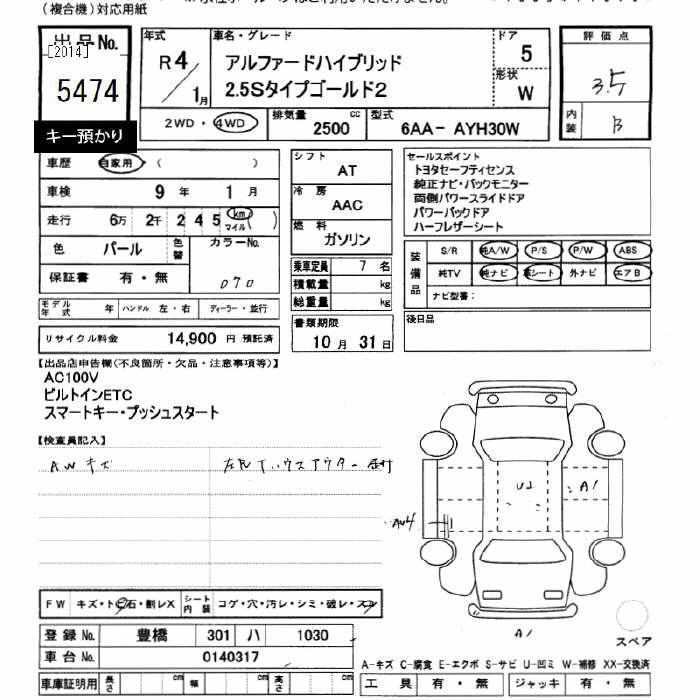 (複合機)対応用紙
出品No.
[2014]
5474
キー預かり
年式
R4/1月
車名・グレード
アルファードハイブリッド
2.5Sタイプゴールド2
ドア
5
形状
W
評価点
3.5
内装
B
2WD・4WD
排気量
2500 cc
型式
6AA- AYH30W
車歴 自家用・( )
車検 9年 1月
走行 6万2千245 km マイル
色 パール 色替 カラーNo.
070
保証書 有・無
モデル年式 年 ハンドル 左・右 ディーラー・並行
リサイクル料金 14,900 円 預託済
シフト
AT
冷房
AAC
燃料
ガソリン
乗車定員 7 名
積載量 kg
総重量 kg
書類期限
10月 31日
セールスポイント
トヨタセーフティセンス
純正ナビ・バックモニター
両側パワースライドドア
パワーバックドア
ハーフレザーシート
装備品
S/R 純A/W P/S P/W ABS
純TV 純ナビ 革シート 外ナビ エアB
ナビ型番:
後日品
【出品店申告欄(不良箇所・欠品・注意事項等)】
AC100V
ビルトインETC
スマートキー・プッシュスタート
【検査員記入】
AWキズ
U2
A1
A1
FW キズ・トビ石・割レX シート内装 コゲ・穴・汚レ・シミ・破レ・スレ
登録No. 豊橋 301 ハ 1030
車台No. 0140317
車庫証明用 長さ cm 幅 cm 高さ cm
スペア
A-キズ C-腐食 E-エクボ S-サビ U-凹ミ W-補修 XX-交換済
工具 有・無 ジャッキ 有・無